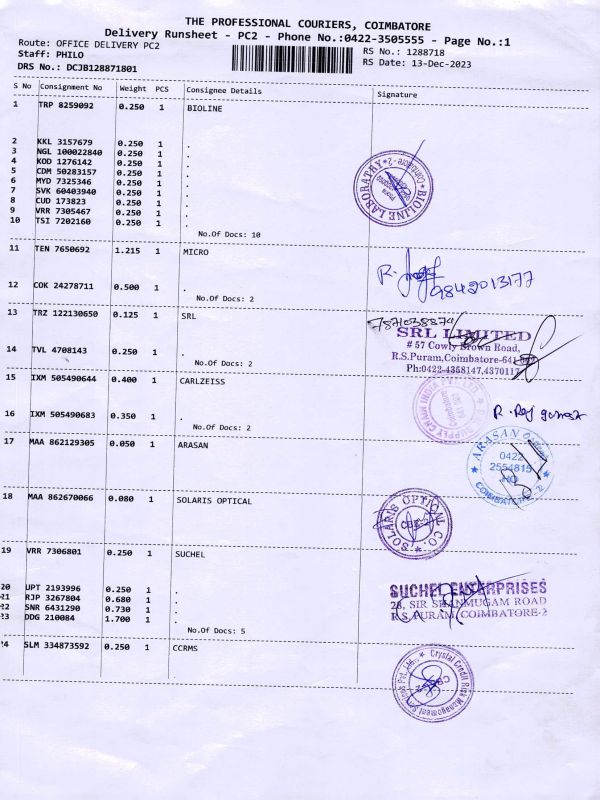 THE PROFESSIONAL COURIERS, COIMBATORE
Delivery Runsheet - PC2 - Phone No.:0422-3505555 - Page No.:1
Route: OFFICE DELIVERY PC2
RS No.: 1288718
Staff: PHILO
RS Date: 13-Dec-2023
DRS No.: DCJB128871801
S No Consignment No Weight PCS Consignee Details Signature
1 TRP 8259092 0.250 1 BIOLINE
2 KKL 3157679 0.250 1 .
3 NGL 100022840 0.250 1 .
4 KOD 1276142 0.250 1 .
5 CDM 50283157 0.250 1 .
6 MYD 7325346 0.250 1 .
7 SVK 60403940 0.250 1 .
8 CUD 173823 0.250 1 .
9 VRR 7305467 0.250 1 .
10 TSI 7202160 0.250 1 .
BIOLINE LABORATARY * Coimbatore-2 *
No.Of Docs: 10
11 TEN 7650692 1.215 1 MICRO
R.
9842013177
12 COK 24278711 0.500 1 .
No.Of Docs: 2
13 TRZ 122130650 0.125 1 SRL
7871038874
SRL LIMITED
# 57 Cowly Brown Road,
14 TVL 4708143 0.250 1 .
R.S.Puram,Coimbatore-641
No.Of Docs: 2
Ph:0422-4358147,4370117
15 IXM 505490644 0.400 1 CARLZEISS
SUPPLY CHAIN INDIA
16 IXM 505490683 0.350 1 .
R. Raj
No.Of Docs: 2
17 MAA 862129305 0.050 1 ARASAN
ARASAN
0422
2554815
COIMBATORE-2
18 MAA 862670066 0.080 1 SOLARIS OPTICAL
SOLARIS OPTICAL CO.
CBE-2
19 VRR 7306801 0.250 1 SUCHEL
20 UPT 2193996 0.250 1 .
21 RJP 3267804 0.680 1 .
22 SNR 6431290 0.730 1 .
23 DDG 210084 1.700 1 .
SUCHEL ENTERPRISES
28, SIR SHANMUGAM ROAD
R.S.PURAM, COIMBATORE-2
No.Of Docs: 5
24 SLM 334873592 0.250 1 CCRMS
Crystal Credit Risk Management Services Pvt. Ltd.,
CBE-2